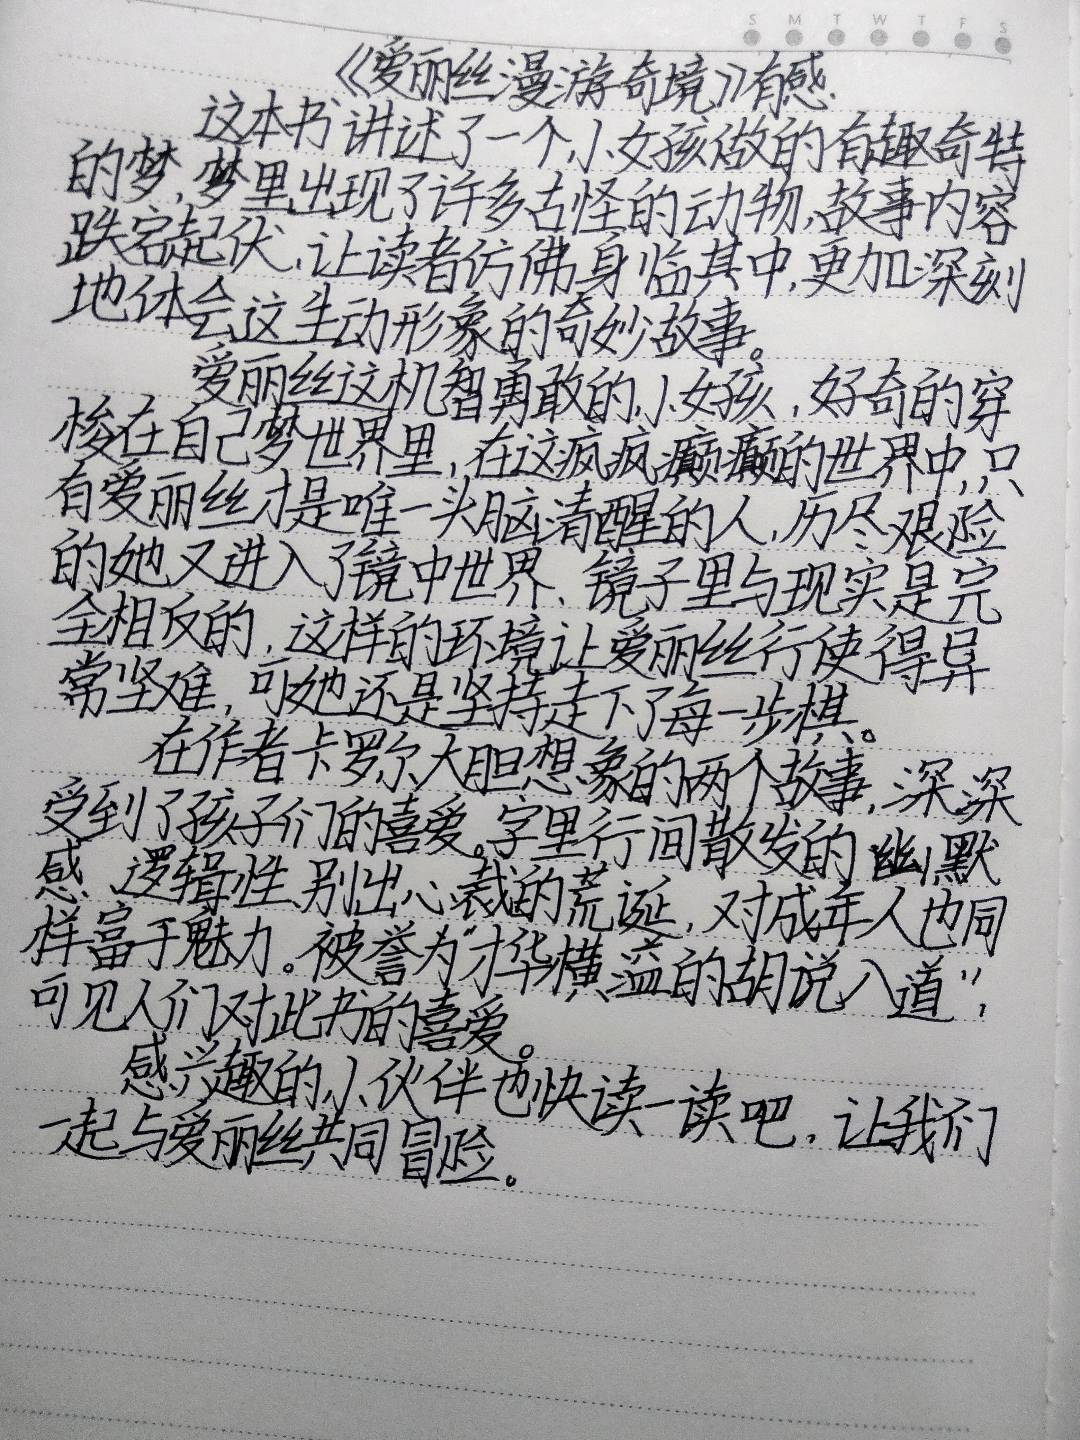 S M T W T F S
《爱丽丝漫游奇境》有感.
这本书讲述了一个小女孩做的有趣奇特
的梦,梦里出现了许多古怪的动物,故事内容
跌宕起伏,让读者仿佛身临其中,更加深刻
地体会这生动形象的奇妙故事。
爱丽丝这机智勇敢的小女孩,好奇的穿
梭在自己梦世界里,在这疯疯癫癫的世界中,只
有爱丽丝才是唯一头脑清醒的人,历尽艰险
的她又进入了镜中世界、镜子里与现实是完
全相反的,这样的环境让爱丽丝行使得异
常坚难,可她还是坚持走下了每一步棋。
在作者卡罗尔大胆想象的两个故事,深深
受到了孩子们的喜爱。字里行间散发的幽默
感、逻辑性、别出心裁的荒诞,对成年人也同
样富于魅力。被誉为“才华横溢的胡说八道”,
可见人们对此书的喜爱。
感兴趣的小伙伴也快读一读吧,让我们
一起与爱丽丝共同冒险。